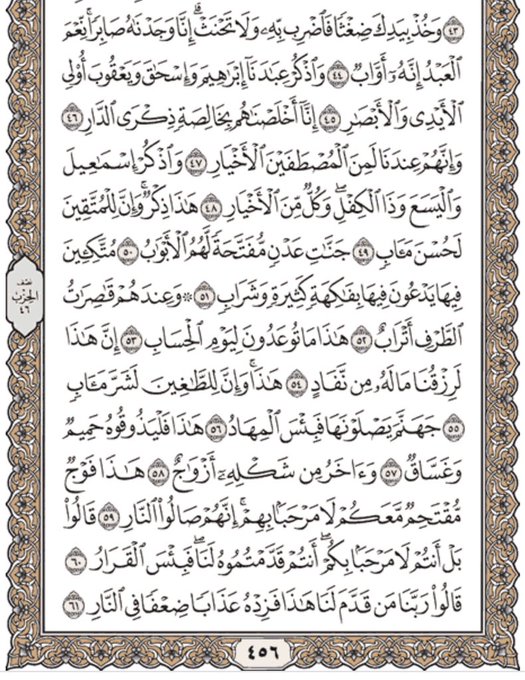 ٤٣ وَخُذْ بِيَدِكَ ضِغْثًا فَٱضْرِب بِّهِۦ وَلَا تَحْنَثْ ۗ إِنَّا وَجَدْنَٰهُ صَابِرًا ۚ نِّعْمَ
ٱلْعَبْدُ إِنَّهُۥٓ أَوَّابٌ ٤٤ وَٱذْكُرْ عِبَٰدَنَآ إِبْرَٰهِيمَ وَإِسْحَٰقَ وَيَعْقُوبَ أُو۟لِى
ٱلْأَيْدِى وَٱلْأَبْصَٰرِ ٤٥ إِنَّآ أَخْلَصْنَٰهُم بِخَالِصَةٍ ذِكْرَى ٱلدَّارِ ٤٦
وَإِنَّهُمْ عِندَنَا لَمِنَ ٱلْمُصْطَفَيْنَ ٱلْأَخْيَارِ ٤٧ وَٱذْكُرْ إِسْمَٰعِيلَ
وَٱلْيَسَعَ وَذَا ٱلْكِفْلِ ۖ وَكُلٌّ مِّنَ ٱلْأَخْيَارِ ٤٨ هَٰذَا ذِكْرٌ ۚ وَإِنَّ لِلْمُتَّقِينَ
لَحُسْنَ مَـَٔابٍ ٤٩ جَنَّٰتِ عَدْنٍ مُّفَتَّحَةً لَّهُمُ ٱلْأَبْوَٰبُ ٥٠ مُتَّكِـِٔينَ
نصف
الحزب
٤٦
فِيهَا يَدْعُونَ فِيهَا بِفَٰكِهَةٍ كَثِيرَةٍ وَشَرَابٍ ٥١ ۞ وَعِندَهُمْ قَٰصِرَٰتُ
ٱلطَّرْفِ أَتْرَابٌ ٥٢ هَٰذَا مَا تُوعَدُونَ لِيَوْمِ ٱلْحِسَابِ ٥٣ إِنَّ هَٰذَا
لَرِزْقُنَا مَا لَهُۥ مِن نَّفَادٍ ٥٤ هَٰذَا ۚ وَإِنَّ لِلطَّٰغِينَ لَشَرَّ مَـَٔابٍ
٥٥ جَهَنَّمَ يَصْلَوْنَهَا فَبِئْسَ ٱلْمِهَادُ ٥٦ هَٰذَا فَلْيَذُوقُوهُ حَمِيمٌ
وَغَسَّاقٌ ٥٧ وَءَاخَرُ مِن شَكْلِهِۦٓ أَزْوَٰجٌ ٥٨ هَٰذَا فَوْجٌ
مُّقْتَحِمٌ مَّعَكُمْ ۖ لَا مَرْحَبًۢا بِهِمْ ۚ إِنَّهُمْ صَالُوا۟ ٱلنَّارِ ٥٩ قَالُوا۟
بَلْ أَنتُمْ لَا مَرْحَبًۢا بِكُمْ ۖ أَنتُمْ قَدَّمْتُمُوهُ لَنَا ۖ فَبِئْسَ ٱلْقَرَارُ ٦٠
قَالُوا۟ رَبَّنَا مَن قَدَّمَ لَنَا هَٰذَا فَزِدْهُ عَذَابًا ضِعْفًا فِى ٱلنَّارِ ٦١
٤٥٦